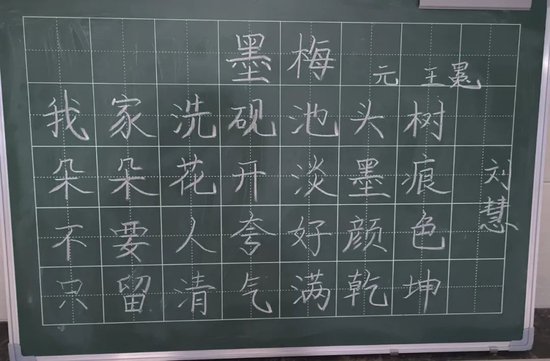 墨梅
元 王冕
我家洗砚池头树
朵朵花开淡墨痕
不要人夸好颜色
只留清气满乾坤
刘慧